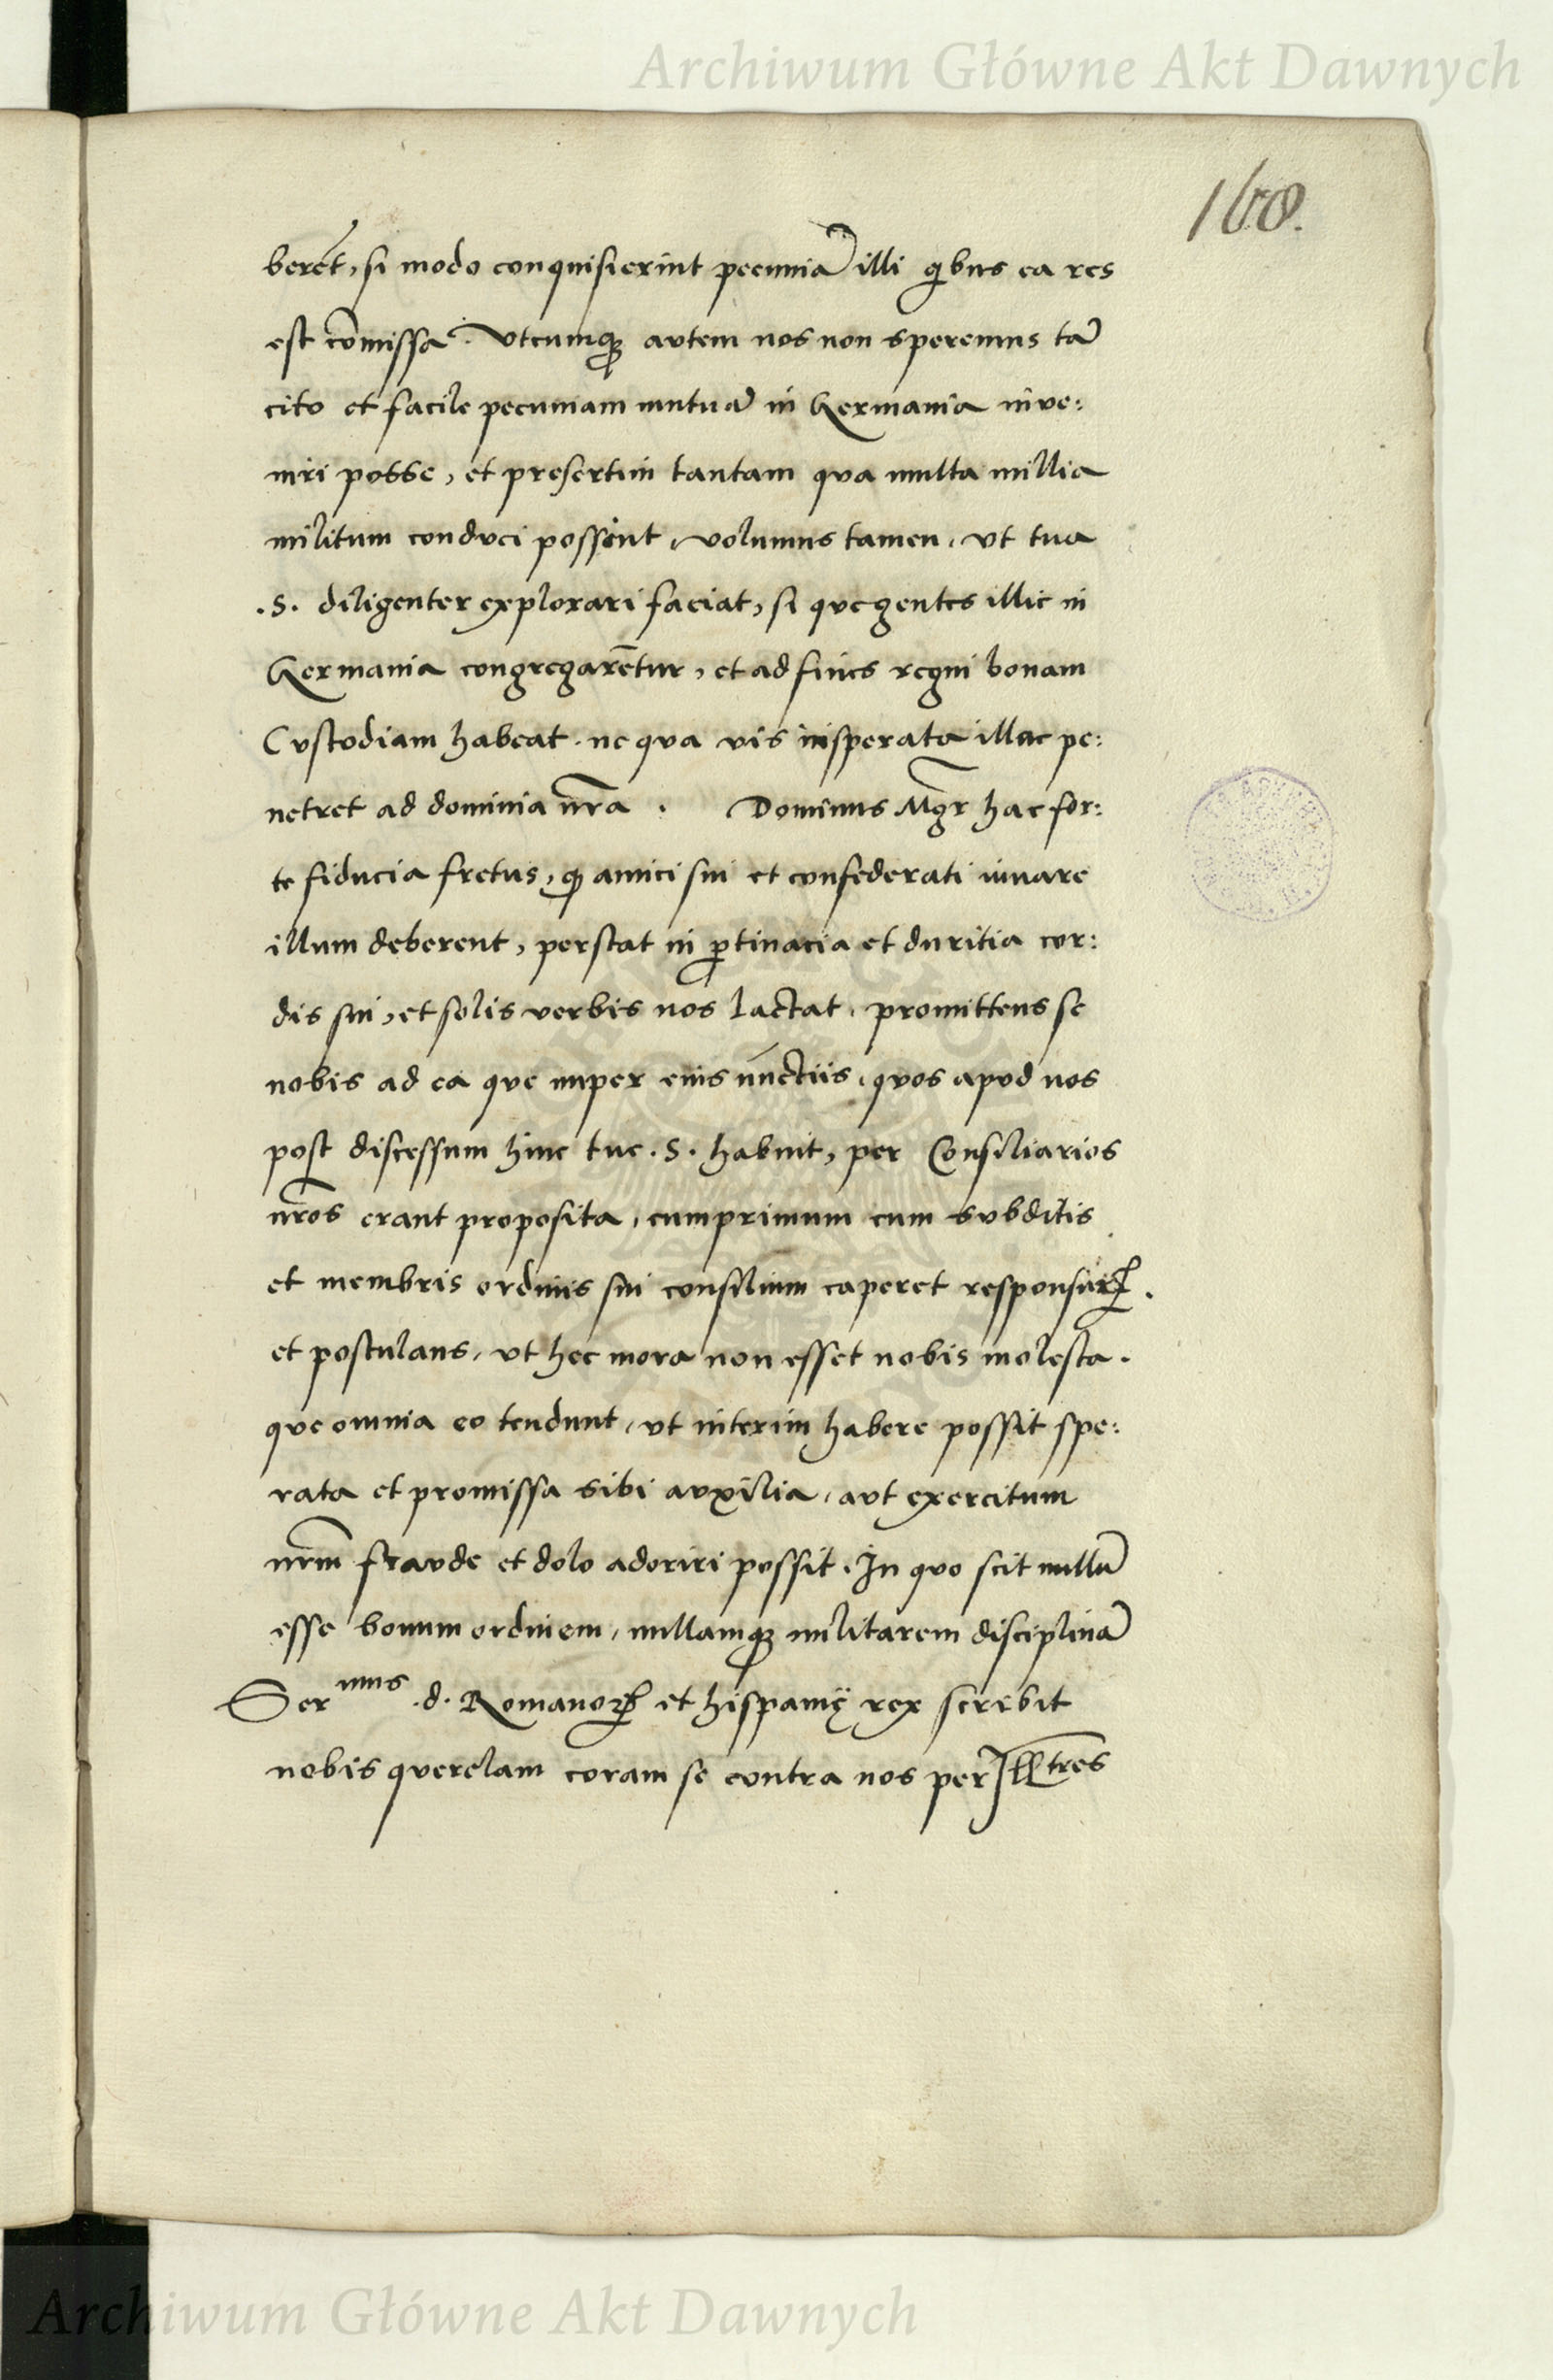 Archiwum Główne Akt Dawnych
168.
berēt, si modo conquisierint pecuniā illi qibus ea res
est cōmissa. Vtcumqꝫ autem nos non speremus tā
cito et facile pecuniam mutuā in Germania inve:
niri posse, et presertim tantam qua multa millia
militum conduci possint, volumus tamen, vt tua
.S. diligenter explorari faciat, si que gentes illic in
Germania congregarētur, et ad fines regni bonam
Custodiam habeat, ne qua vis insperata illac pe:
netret ad dominia nr̄a. Dominus Mgr̄ hac for:
te fiducia fretus, qꝫ amici sui et confederati iuuare
illum deberent, perstat in ꝑtinacia et duritia cor:
dis sui, et solis verbis nos lactat, promittens se
nobis ad ea que nuper eius nūctiis, quos apud nos
post discessum hinc tue .S. habuit, per Consiliarios
nr̄os erant proposita, cumprimum cum subditis
et membris ordinis sui consilium caperet responsurꝝ.
et postulans, vt hec mora non esset nobis molesta.
que omnia eo tendunt, vt interim habere possit spe:
rata et promissa sibi auxilia, aut exercitum
nr̄m fraude et dolo adoriri possit. In quo scit nullū
esse bonum ordinem, nullamqꝫ militarem disciplinā
Ser^mus .d. Romanoꝝ et hispanię rex scribit
nobis querelam coram se contra nos per Ill^tres
Archiwum Główne Akt Dawnych